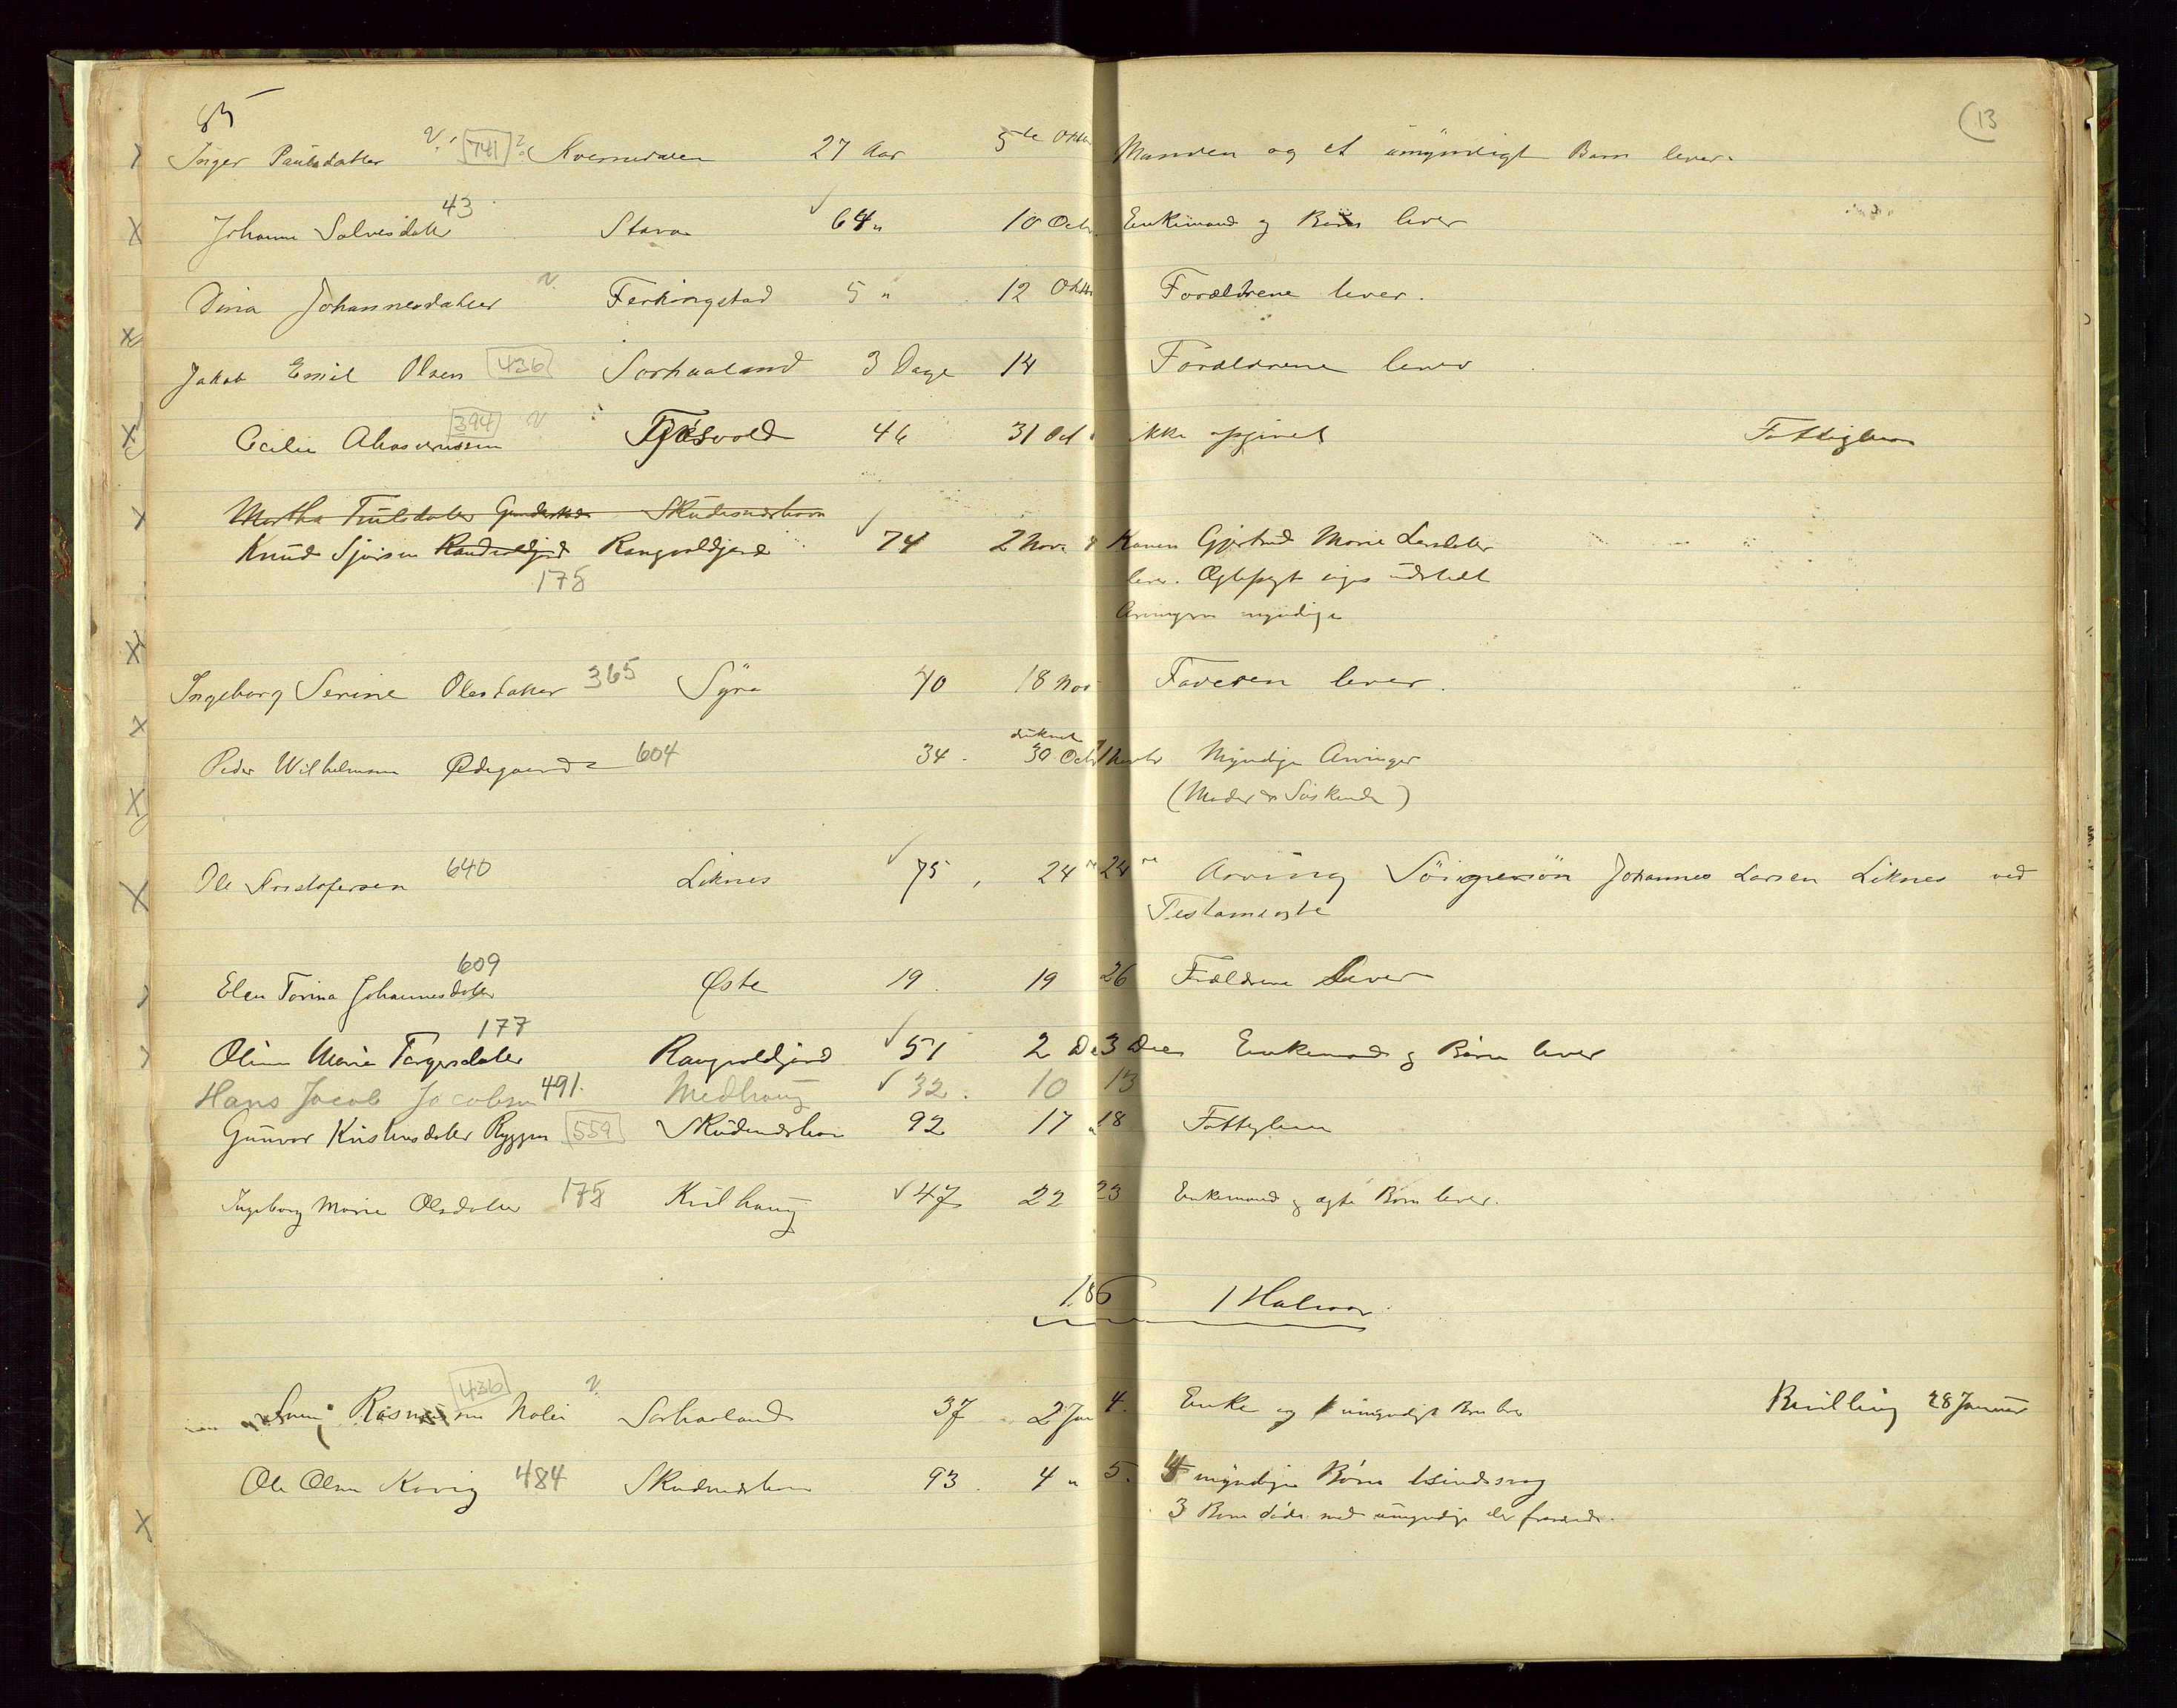 85
13
Inger Paulsdatter 741 ? Kvernevolen 27 Aar 5te Oktbr Manden og et umyndigt Barn lever.
Johanne Salvesdatter 43 Stava 64 " 10 Octr. Enkemand og Børn lever
Dina Johannesdatter Ferkingstad 5 " 12 Oktbr Forældrene lever.
Jakob Emil Olsen 436 Sørhaaland 3 Dage 14 Forældrene lever
Cecilie Ahasverussen 394 Tjøsvold 46 31 Oct ikke opgivet Fattiglem
Martha Trulsdatter Skudesneshavn
Knud Sjursen Randvoldjord Rangvoldjord 74 2 Novr Konen Gjertrud Marie Larsdatter
175 lever. siges udstedt
Arvinger myndige
Ingeborg Serine Olesdatter 365 Syre 40 18 Nov Faderen lever.
druknet
Peder Wilhelmsen Ødegaard 604 34. 30 Octr Myndige Arvinger
(Moder & Søskende)
Ole Kristofersen 640 Liknes 75, 24 24 Arving Johannes Larsen Liknes ved
Testamente
Elen Torina Johannesdatter 609 Øste 19. 19 26 Forældrene Lever
Oline Marie Torgersdatter 177 Rangvoldjord 51 2 De 3 Dec Enkemand og Børn lever
Hans Jacob Jacobsen 491. Medhaug 32. 10 13
Gunvor Kristensdatter Ryggen 559 Skudeneshavn 92 17 18 Fattiglem
Ingeborg Marie Olsdatter 175 Kirlhaug 47 22 23 Enkemand og ægte Børn lever.
1.86 1 Halvaar
Rasmussen 436 Sørhaaland 37 2 Jan 4. Enke og 1 umyndigt Barn lever Kvilling 28 Januar
Ole Olsen Kavig 484 Skudneshavn 93. 4 " 5. 4 myndige Børn
3 Børn døde med umyndige